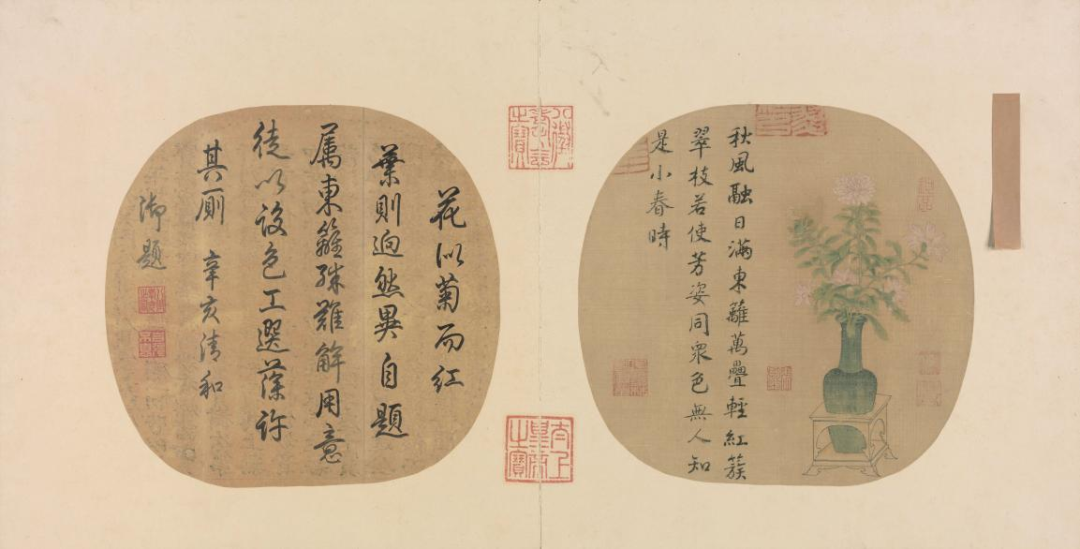 秋風融日滿東籬萬疊輕紅簇
翠枝若使芳姿同衆色無人知
是小春時
八徵耄念之寶
太上皇帝之寶
花似菊而紅
葉則逈然異自題
属東籬殊難解用意
徒以設色工選藻許
其厠 辛亥清和
御題